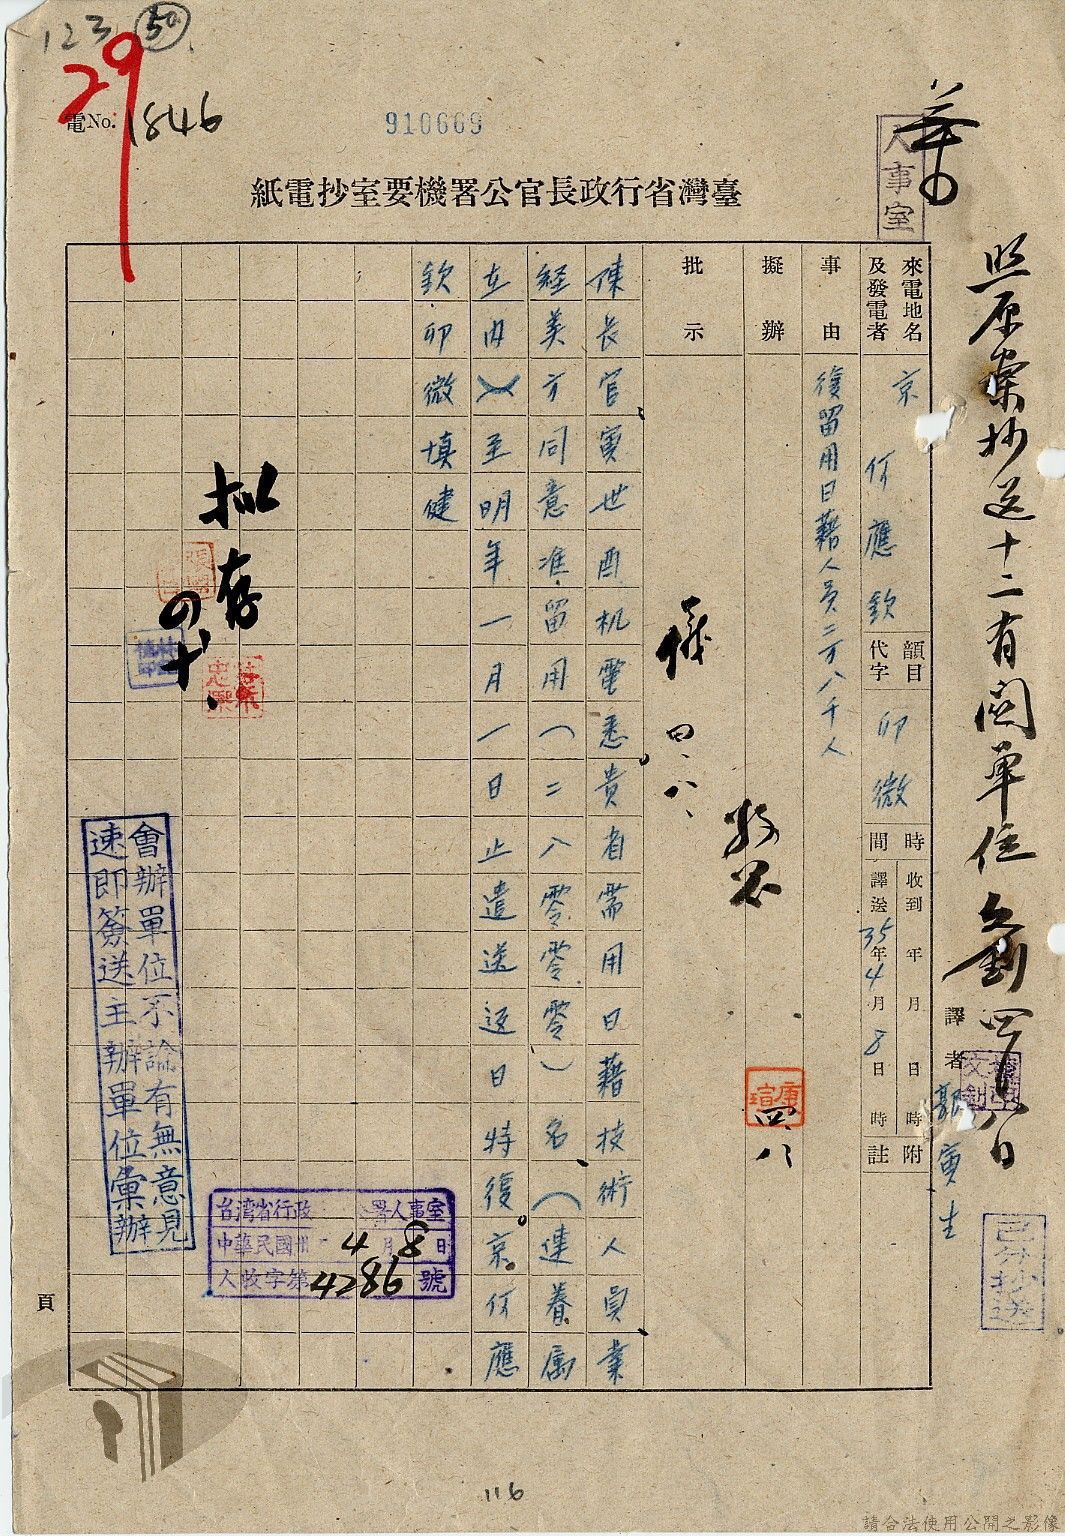 123 50
29
電No. 1846
910669
人事室
臺灣省行政長官公署機要室抄電紙
照原案抄送十二有關單位 劉 四月八日
來電地名及發電者
京 何應欽
韻目代字
卯微
時間
收到 年 月 日 時
譯送 35年4月8日 時
附註
譯者 郭寅生
事由
復留用日藉人員二万八千人
擬辦
批示
儀 四、八、
四、八
陳長官寅世酉机電悉貴省需用日藉技術人員業
經美方同意准留用(二八零零零)名(連眷属
在內)至明年一月一日止遣送返日特復京何應
欽卯微填健
拟存
四、十、
會辦單位不論有無意見
速即簽送主辦單位彙辦
台灣省行政 公署人事室
中華民國卅 4月8日
人收字第4286號
已分抄送
頁
116
請合法使用公開之影像